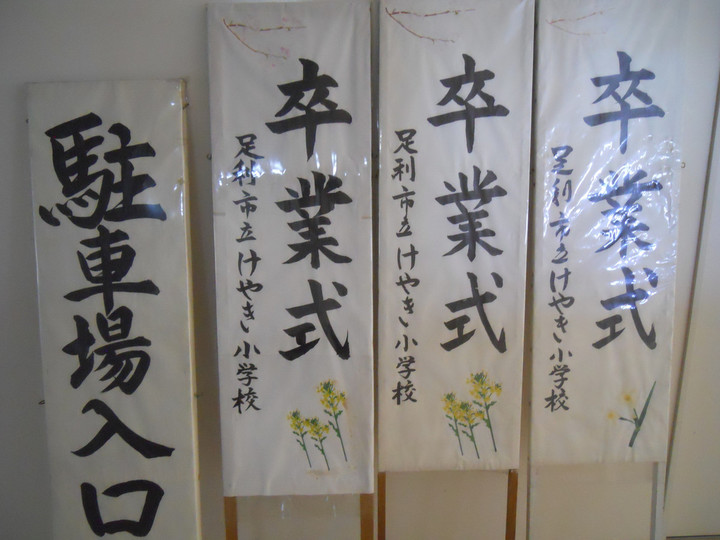 駐車場入口
卒業式
足利市立けやき小学校
卒業式
足利市立けやき小学校
卒業式
足利市立けやき小学校